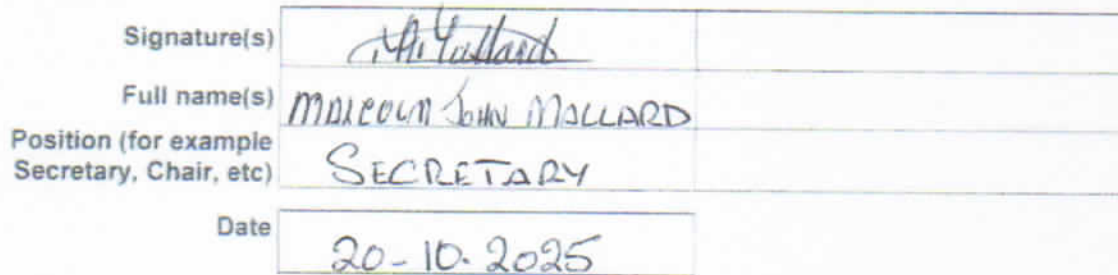 Signature(s)
Full name(s) MALCOLM JOHN MALLARD
Position (for example
Secretary, Chair, etc) SECRETARY
Date 20-10.2025